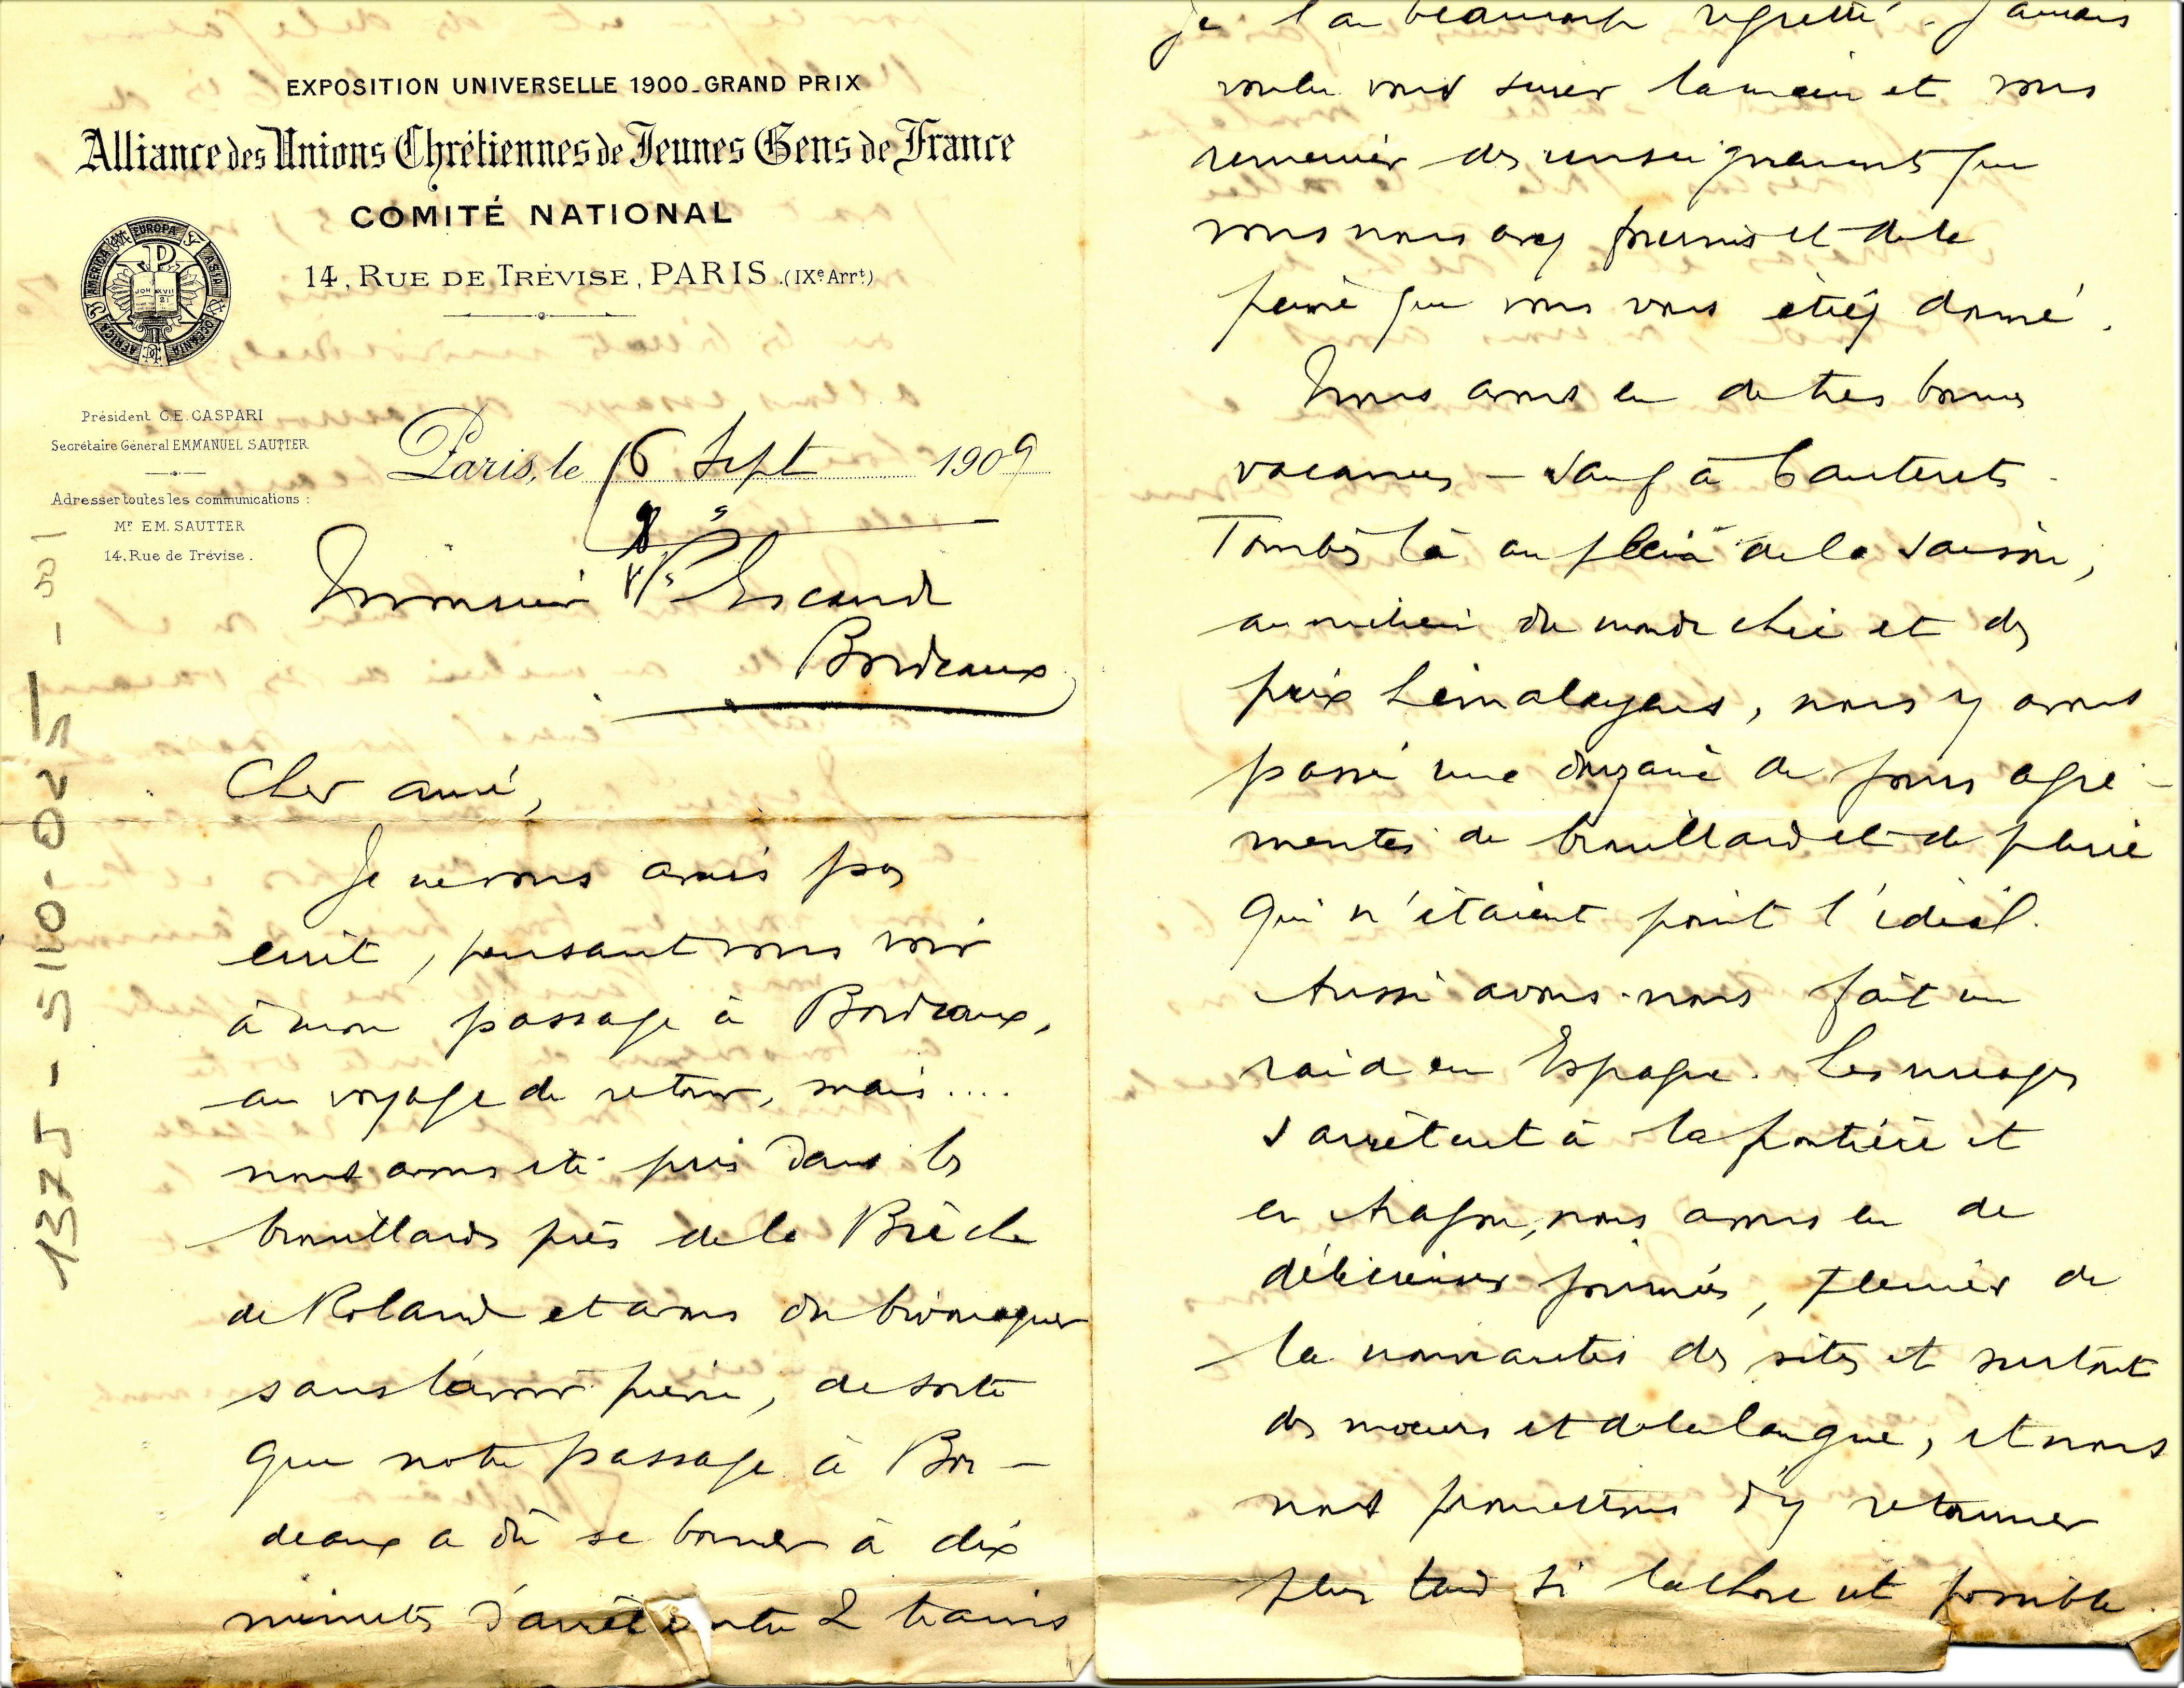 EXPOSITION UNIVERSELLE 1900_GRAND PRIX
Alliance des Unions Chrétiennes de Jeunes Gens de France
COMITÉ NATIONAL
14, RUE DE TRÉVISE, PARIS.(IXe Arrt)
EUROPA
ASIA
OCEANIA
AFRICA
AMERICA
JOH XVII 21
Président C.E. CASPARI
Secrétaire Général EMMANUEL SAUTTER
Adresser toutes les communications :
Mr EM. SAUTTER
14. Rue de Trévise.
Paris, le 16 Sept 1909
Monsieur Escande
Bordeaux
1375-5110-025-001
Cher ami,
Je ne vous avais pas
écrit, pensant vous voir
à mon passage à Bordeaux,
au voyage de retour, mais....
nous avons été pris dans les
brouillards près de la Brèche
de Roland et avons du bivouaquer
sans l'avoir prévu, de sorte
que notre passage à Bor-
deaux a dû se borner à dix
minutes d'arrêt entre 2 trains
Je l'ai beaucoup regretté. J'aurais
voulu vous serrer la main et vous
remercier des renseignements que
vous nous avez fournis et de la
peine que vous vous étiez donné.
Nous avons eu de très bonnes
vacances - sauf à Cauterets.
Tombés là au plein de la saison,
au milieu du monde chic et des
prix himalayens, nous y avons
passé une dizaine de jours agré-
mentés de brouillard et de pluie
qui n'étaient point l'idéal.
Aussi avons-nous fait un
raid en Espagne. Les nuages
s'arrêtent à la frontière et
en Aragon, nous avons eu de
délicieuses journées, pleines de
la nouveautés des sites et surtout
des moeurs et de la langue, et nous
nous promettons d'y retourner
plus tard si la chose est possible.